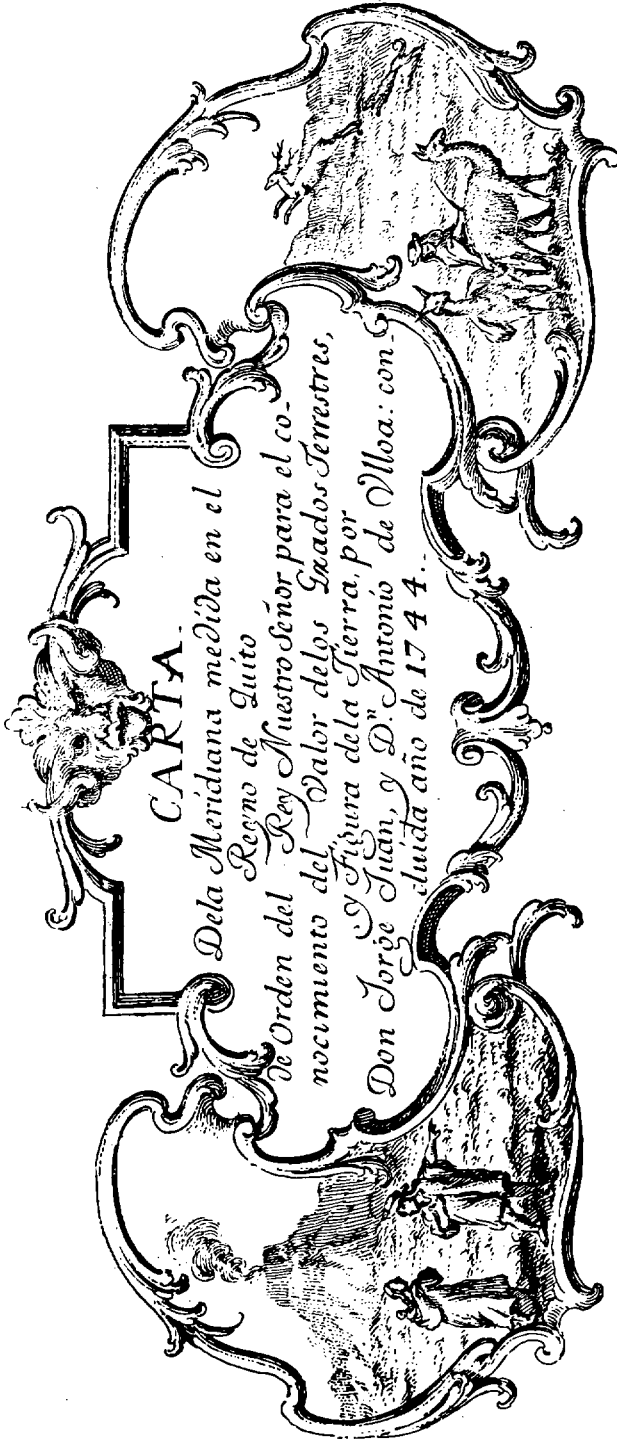 CARTA.
Dela Meridiana medida en el
Reyno de Quito
de Orden del Rey Nuestro Señor para el co-
nocimiento del Valor delos Grados Terrestres,
y Figura dela Tierra, por
Don Jorge Juan, y D.ⁿ Antonio de Vlloa: con-
cluida año de 1744..